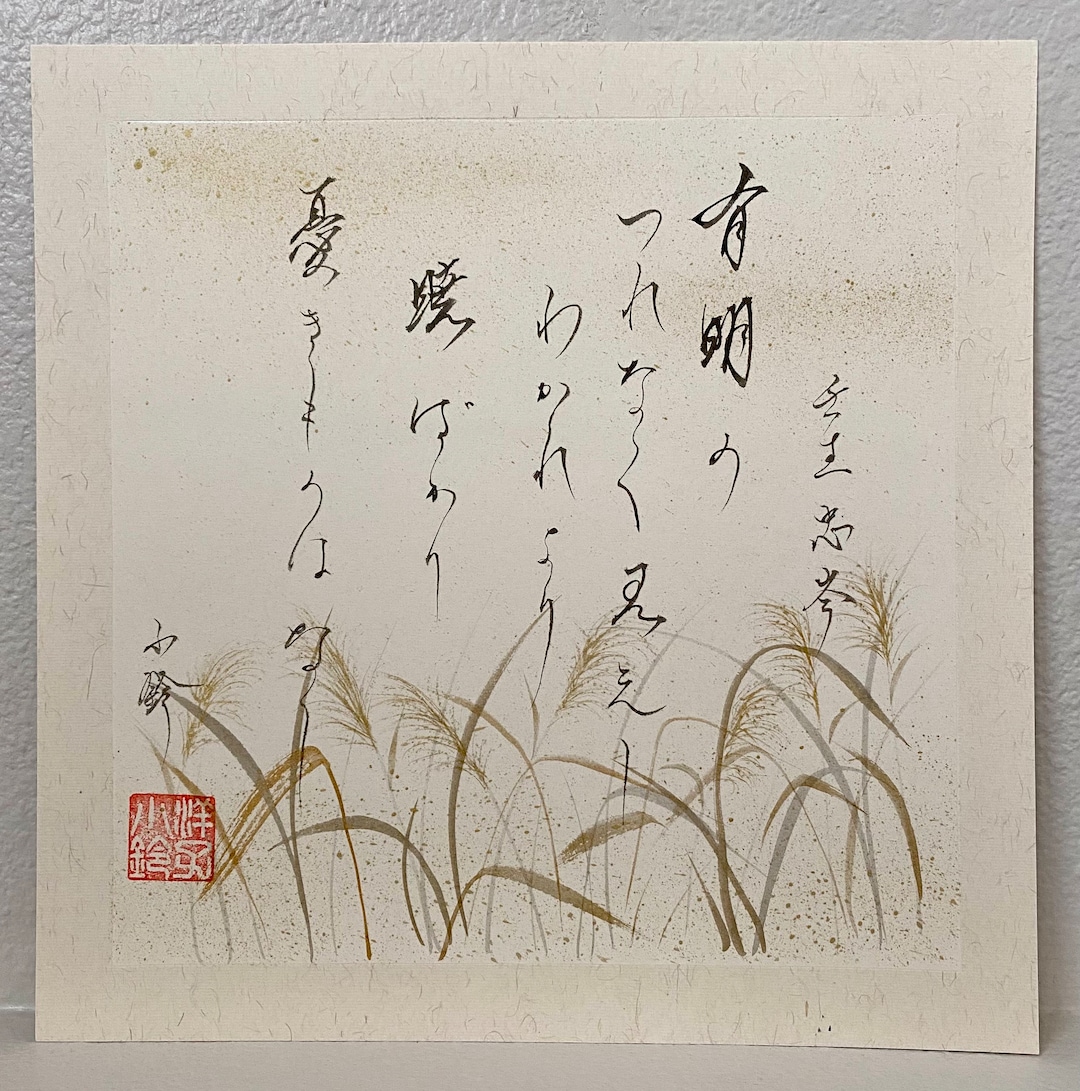 壬生忠岑
有明の
つれなく見えし
わかれより
曉ばかり
憂きものはなし
小鈴
洋子
小鈴